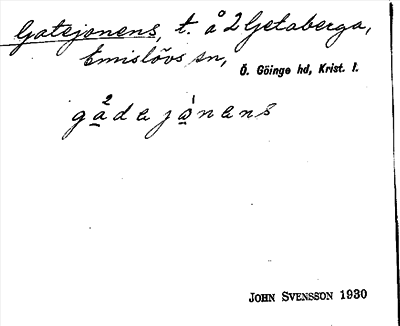 Gatejonens, t. å 2 Getaberga,
Emislövs sn,
Ö. Göinge hd, Krist. l.
gadajonens
JOHN SVENSSON 1930